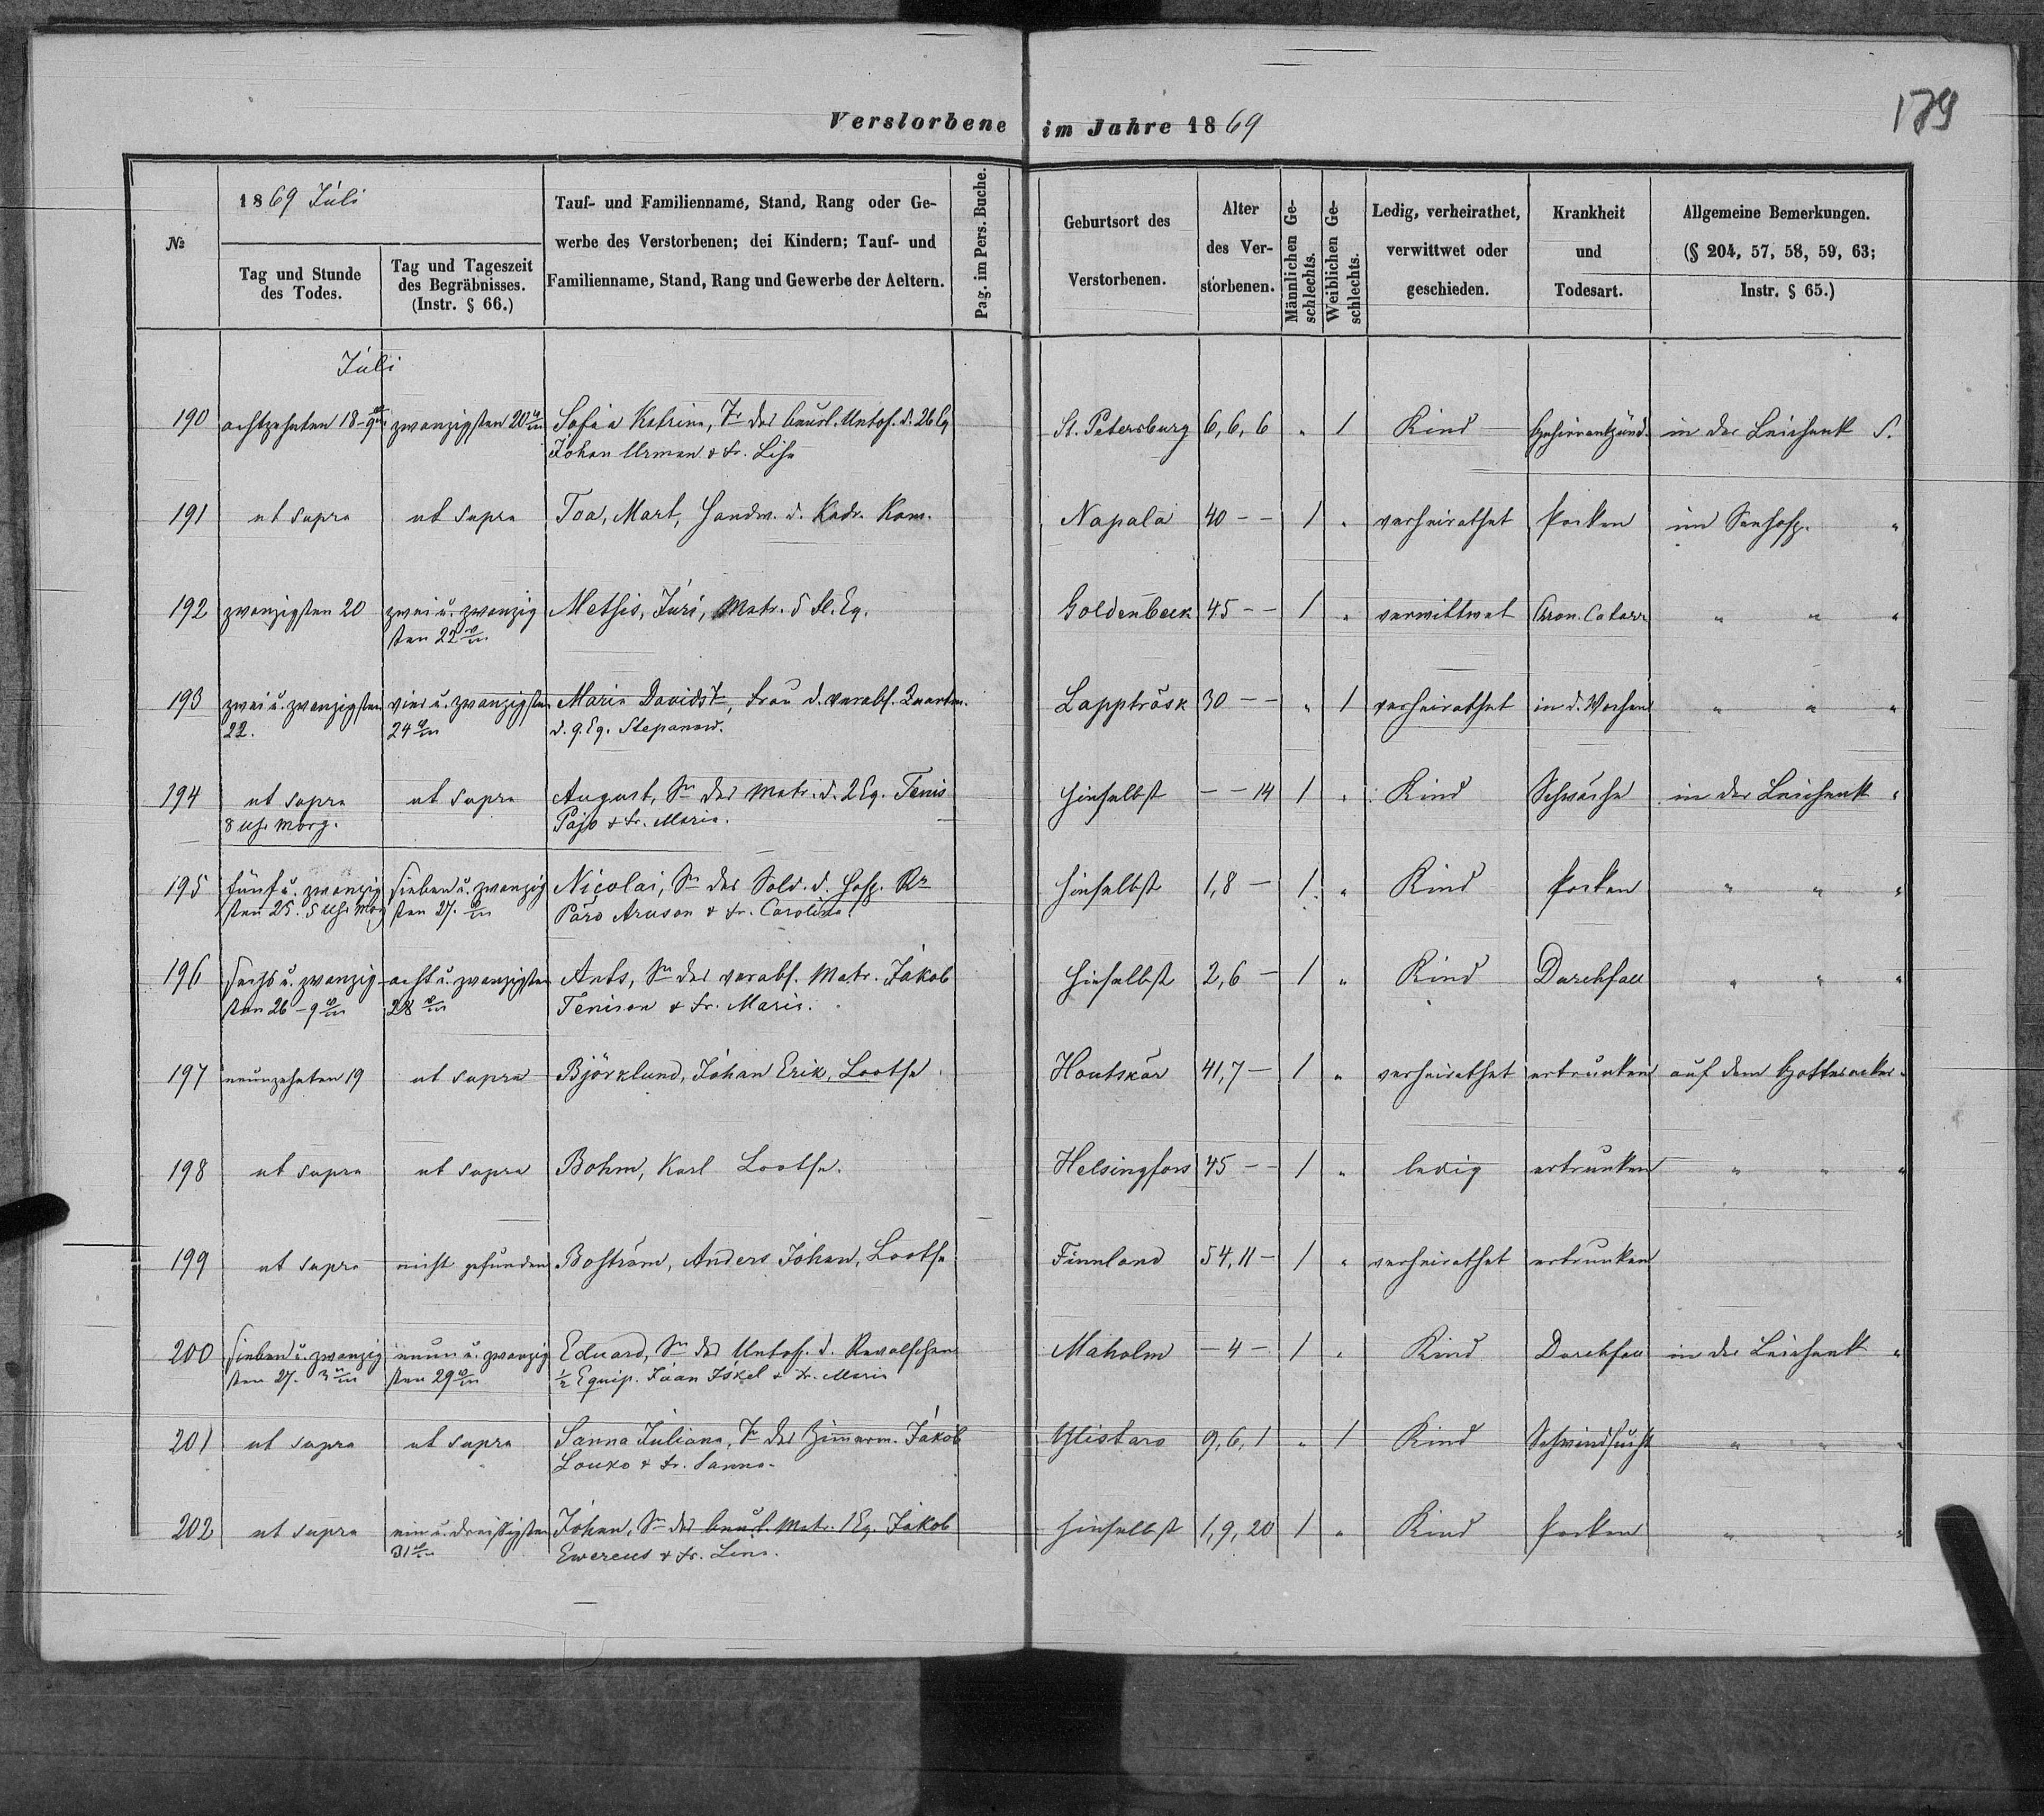 Verstorbene im Jahre 1869
179
№
1869 Juli
Tag und Stunde des Todes.
Tag und Tageszeit des Begräbnisses. (Instr. § 66.)
Tauf- und Familienname, Stand, Rang oder Ge-
werbe des Verstorbenen; dei Kindern; Tauf- und
Familienname, Stand, Rang und Gewerbe der Aeltern.
Pag. im Pers. Buche.
Geburtsort des Verstorbenen.
Alter des Ver- storbenen.
Männlichen Ge- schlechts.
Weiblichen Ge- schlechts.
Ledig, verheirathet, verwittwet oder geschieden.
Krankheit und Todesart.
Allgemeine Bemerkungen. (§ 204, 57, 58, 59, 63; Instr. § 65.)
Juli
190 achtzehnten 18 zwanzigsten 20 Sofia Katrina, Tr des beurl. Untof. d. 26 Eq St. Petersburg 6, 6, 6 " 1 Kind Gehirnentzünd. in der Leichenk S.
Johan Urman & Fr. Lisa
191 ut supra ut supra Toa, Mart, Handw. d. Kadr. Kom. Napala 40 - - 1 " verheirathet Pocken im Seehosp. "
192 zwanzigsten 20 zwei u. zwanzig Methis, Jüri, Matr. 5 Fl. Eq. Goldenbeck 45 - - 1 " verwittwet Chron. Catarr " " "
sten 22
193 zwei u. zwanzigsten vier u. zwanzigsten Maria Davidstr, Frau d. verabs. Quartm. Lappträsk 30 - - " 1 verheirathet in d. Wochen " " "
22. 24 d. 9. Eq. Stepanow.
194 ut supra ut supra August, Sn des Matr. d. 2 Eq. Tenis hieselbst - - 14 1 " Kind Schwäche in der Leichenk "
8 Uhr Morg. Pajo & Fr. Maria.
195 fünf u. zwanzig sieben u. zwanzig Nicolai, Sn des Sold. d. Hosp. hieselbst 1,8 - 1 " Kind Pocken " " "
sten 25. 5 Uhr Morg sten 27. Päro Aruson & Fr. Carolina
196 sechs u. zwanzig acht u. zwanzigsten Ants, Sn des verabs. Matr. Jakob hieselbst 2,6 - 1 " Kind Durchfall " " "
sten 26 - 9 28 Tenison & Fr. Maria.
197 neunzehnten 19 ut supra Björklund, Johan Erik, Lootse Houtskär 41,7 - 1 " verheirathet ertrunken auf dem Gottesacker "
198 ut supra ut supra Bohm, Karl Lootse. Helsingfors 45 - - 1 " ledig ertrunken " " "
199 ut supra nicht gefunden Boström, Anders Johan, Lootse Finnland 54,11 - 1 " verheirathet ertrunken
200 sieben u. zwanzig neun u. zwanzig Eduard, Sn des Untof. d. Revalschen Maholm - 4 - 1 " Kind Durchfall in der Leichenk "
sten 27. 3 sten 29 1/2 Equip. Jaan Iskel & Fr. Maria
201 ut supra ut supra Sanna Juliana, Tr des Zimmerm. Jakob Ylistaro 9, 6, 1 " 1 Kind Schwindsucht " " "
Louko & Fr. Sanna.
202 ut supra ein u. dreißigsten Johan, Sn des beurl. Matr. 1 Eq. Jakob hieselbst 1, 9, 20 1 " Kind Pocken " " "
31 Ewereus & Fr. Lena.